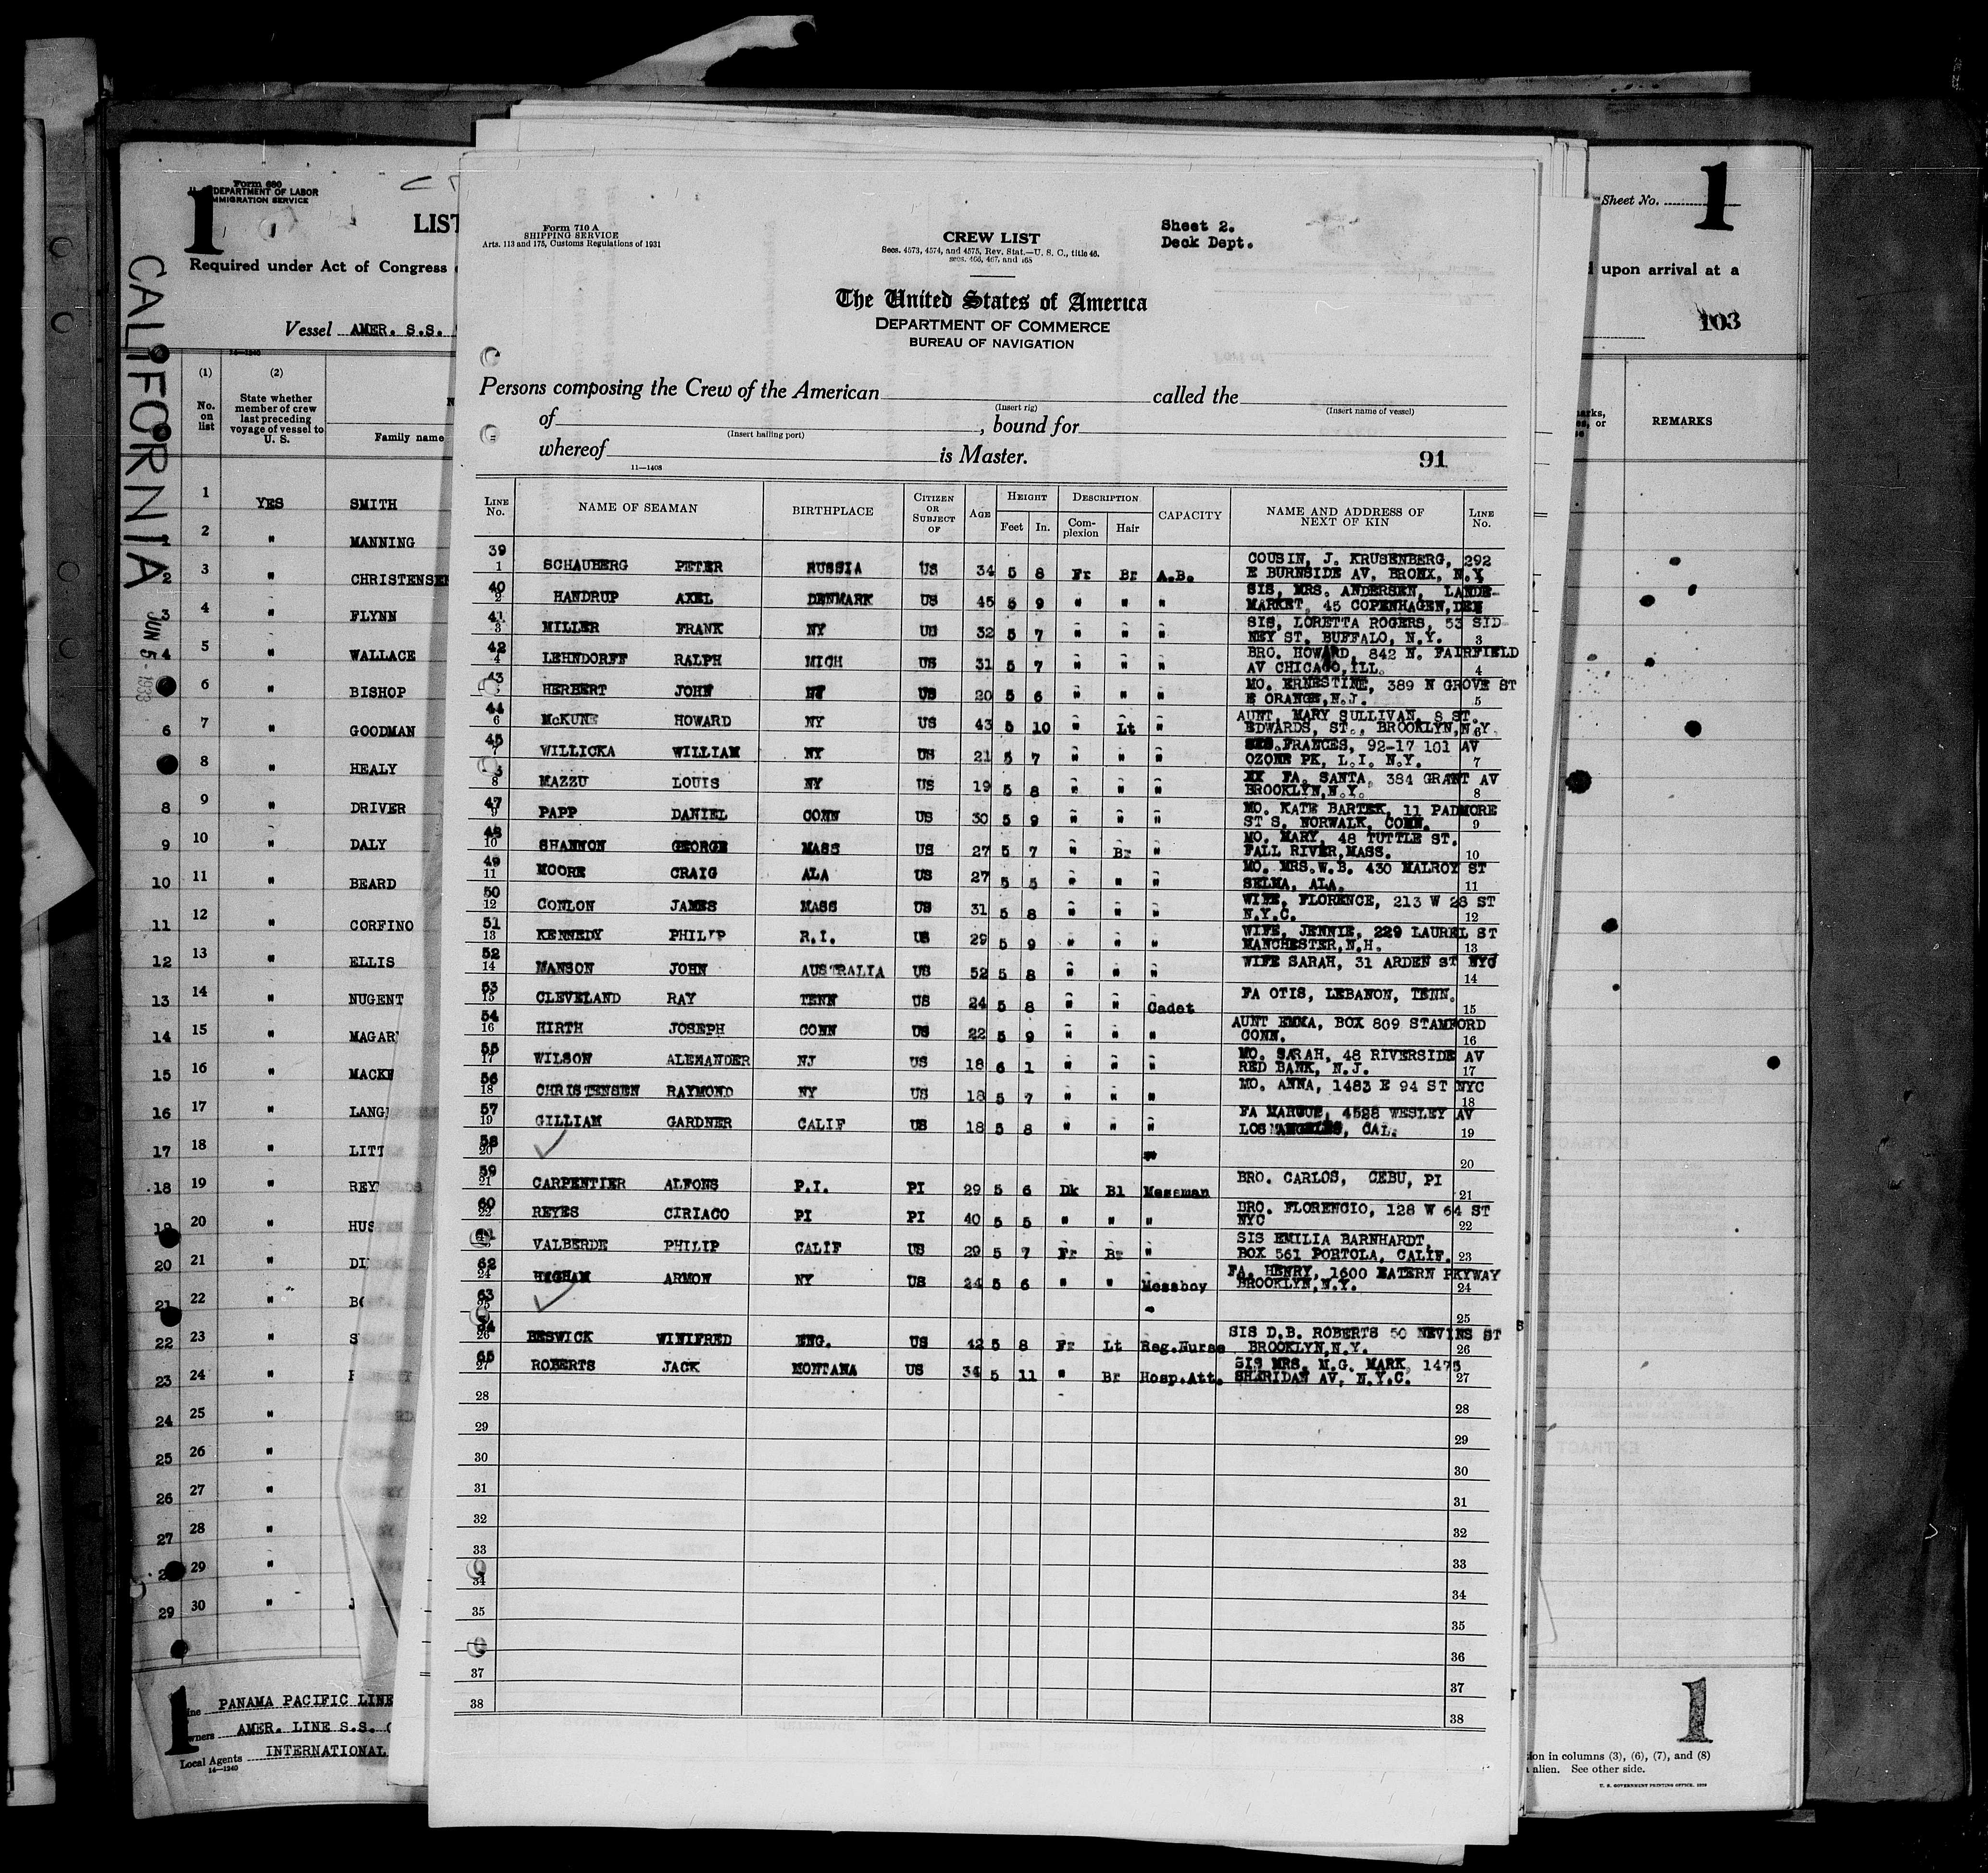 Form 680
U. S. DEPARTMENT OF LABOR
IMMIGRATION SERVICE
1
LIST
Required under Act of Congress
Vessel AMER. S.S.
CALIFORNIA
JUN 5 - 1933
14—1240
(1) (2)
No. on list
State whether member of crew last preceding voyage of vessel to U. S.
Family name
1 YES SMITH
1 2 " MANNING
2 3 " CHRISTENSEN
3 4 " FLYNN
4 5 " WALLACE
6 " BISHOP
6 7 " GOODMAN
8 " HEALY
8 9 " DRIVER
9 10 " DALY
10 11 " BEARD
11 12 " CORFINO
12 13 " ELLIS
13 14 " NUGENT
14 15 " MAGAR
15 16 " MACKE
16 17 " LANG
17 18 " LITT
18 19 " REY
19 20 " HUS
20 21 " DI
21 22 " BO
22 23 " S
23 24 "
24 25 "
25 26 "
26 27 "
27 28 "
29 "
29 30 " J
1
Line PANAMA PACIFIC LINE
Owners AMER. LINE S.S.
Local Agents INTERNATIONAL
14—1240
Form 710 A
SHIPPING SERVICE
Arts. 113 and 175, Customs Regulations of 1931
CREW LIST
Secs. 4573, 4574, and 4575, Rev. Stat.—U. S. C., title 46,
secs. 466, 467, and 168
Sheet 2.
Deck Dept.
The United States of America
DEPARTMENT OF COMMERCE
BUREAU OF NAVIGATION
Persons composing the Crew of the American called the
(Insert rig) (Insert name of vessel)
of , bound for
(Insert hailing port)
whereof is Master.
11—1408
91
LINE No. NAME OF SEAMAN BIRTHPLACE CITIZEN OR SUBJECT OF AGE HEIGHT Feet In. DESCRIPTION Complexion Hair CAPACITY NAME AND ADDRESS OF NEXT OF KIN LINE No.
39 1 SCHAUBERG PETER RUSSIA US 34 5 8 Fr Br A.B. COUSIN, J. KRUSENBERG, 292
E BURNSIDE AV. BRONX, N.Y.
40 2 HANDRUP AXEL DENMARK US 45 5 9 " " " SIS, MRS. ANDERSEN, LANDE-
MARKET, 45 COPENHAGEN, DEN
41 3 MILLER FRANK NY US 32 5 7 " " " SIS, LORETTA ROGERS, 53 SID-
NEY ST. BUFFALO, N.Y. 3
42 4 LEHNDORFF RALPH MICH US 31 5 7 " " " BRO. HOWARD, 842 N. FAIRFIELD
AV CHICAGO, ILL. 4
43 HERBERT JOHN US 20 5 6 " " " MO. ERNESTINE, 389 N GROVE ST
E ORANGE, N.J. 5
44 6 McKUNE HOWARD NY US 43 5 10 " Lt " AUNT, MARY SULLIVAN, 8 ST.
EDWARDS, ST., BROOKLYN, N.Y. 6
45 7 WILLICKA WILLIAM NY US 21 5 7 " " " FRANCES, 92-17 101 AV
OZONE PK, L.I. N.Y. 7
8 MAZZU LOUIS NY US 19 5 8 " " " FA. SANTA, 384 GRANT AV
BROOKLYN, N.Y. 8
47 9 PAPP DANIEL CONN US 30 5 9 " " " MO. KATE BARTEK, 11 PADMORE
ST S. NORWALK, CONN. 9
48 10 SHANNON GEORGE MASS US 27 5 7 " Br " MO. MARY, 48 TUTTLE ST.
FALL RIVER, MASS. 10
49 11 MOORE CRAIG ALA US 27 5 5 " " " MO. MRS. W.B. 430 MALROY ST
SELMA, ALA. 11
50 12 CONLON JAMES MASS US 31 5 8 " " " WIFE, FLORENCE, 213 W 28 ST
N.Y.C. 12
51 13 KENNEDY PHILIP R.I. US 29 5 9 " " " WIFE, JENNIE, 229 LAUREL ST
MANCHESTER, N.H. 13
52 14 MANSON JOHN AUSTRALIA US 52 5 8 " " " WIFE SARAH, 31 ARDEN ST NYC
14
53 15 CLEVELAND RAY TENN US 24 5 8 " " Cadet FA OTIS, LEBANON, TENN. 15
54 16 HIRTH JOSEPH CONN US 22 5 9 " " " AUNT EMMA, BOX 809 STAMFORD
CONN. 16
55 17 WILSON ALEMANDER NJ US 18 6 1 " " " MO. SARAH, 48 RIVERSIDE AV
RED BANK, N.J. 17
56 18 CHRISTENSEN RAYMOND NY US 18 5 7 " " " MO. ANNA, 1483 E 94 ST NYC
18
57 19 GILLIAM GARDNER CALIF US 18 5 8 " " " FA 4528 WESLEY AV
LOS ANGELES, CAL. 19
58 20 " 20
59 21 CARPENTIER ALFONS P.I. PI 29 5 6 Dk Bl Messman BRO. CARLOS, CEBU, PI 21
60 22 REYES CIRIACO PI PI 40 5 5 " " " BRO. FLORENCIO, 128 W 64 ST
NYC 22
VALBERDE PHILIP CALIF US 29 5 7 Fr Br " SIS EMILIA BARNHARDT,
BOX 561 PORTOLA, CALIF. 23
62 24 HIGHAM ARMON NY US 24 5 6 " " Messboy FA. HENRY, 1600 EATERN PKYWAY
BROOKLYN, N.Y. 24
63 25 " 25
26 BESWICK WINIFRED ENG. US 42 5 8 Fr Lt Reg.Nurse SIS D.B. ROBERTS 50 NEVINS ST
BROOKLYN, N.Y. 26
65 27 ROBERTS JACK MONTANA US 34 5 11 " Br Hosp.Att. SIS MRS. M.G. MARK, 1475
SHERIDAN AV, N.Y.C. 27
28 28
29 29
30 30
31 31
32 32
33 33
34 34
35 35
36
37 37
38 38
Sheet No. 1
upon arrival at a
103
REMARKS
1
tion in columns (3), (6), (7), and (8)
alien. See other side.
U. S. GOVERNMENT PRINTING OFFICE